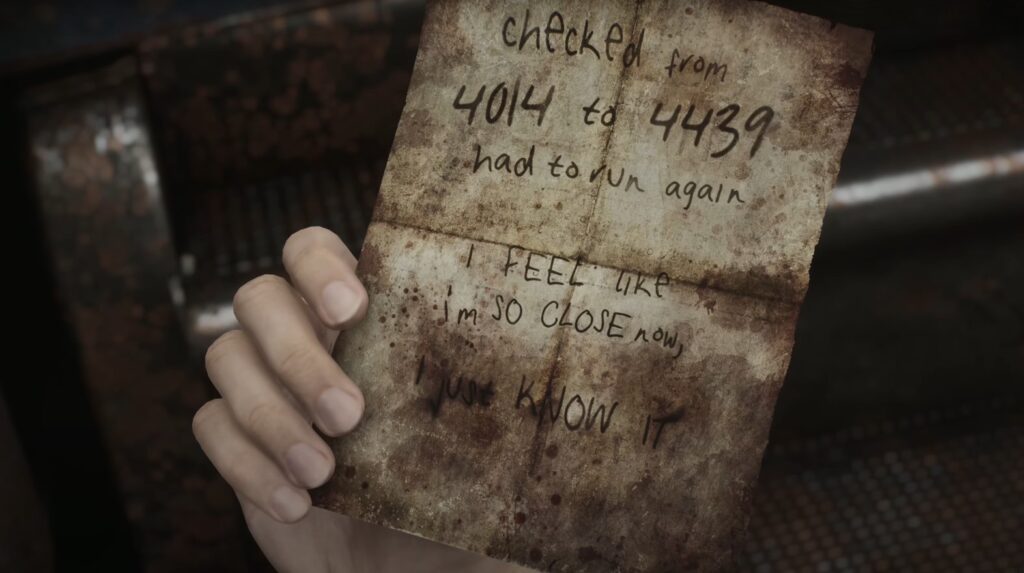 checked from
4014 to 4439
had to run again
I FEEL like
i'm SO CLOSE now,
I just KNOW IT